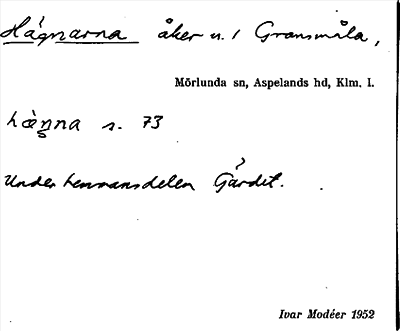 Hägnarna åker n. 1 Gransmåla,
Mörlunda sn, Aspelands hd, Klm. l.
hæŋna s. 73
Under hemmansdelen Gärdet.
Ivar Modéer 1952